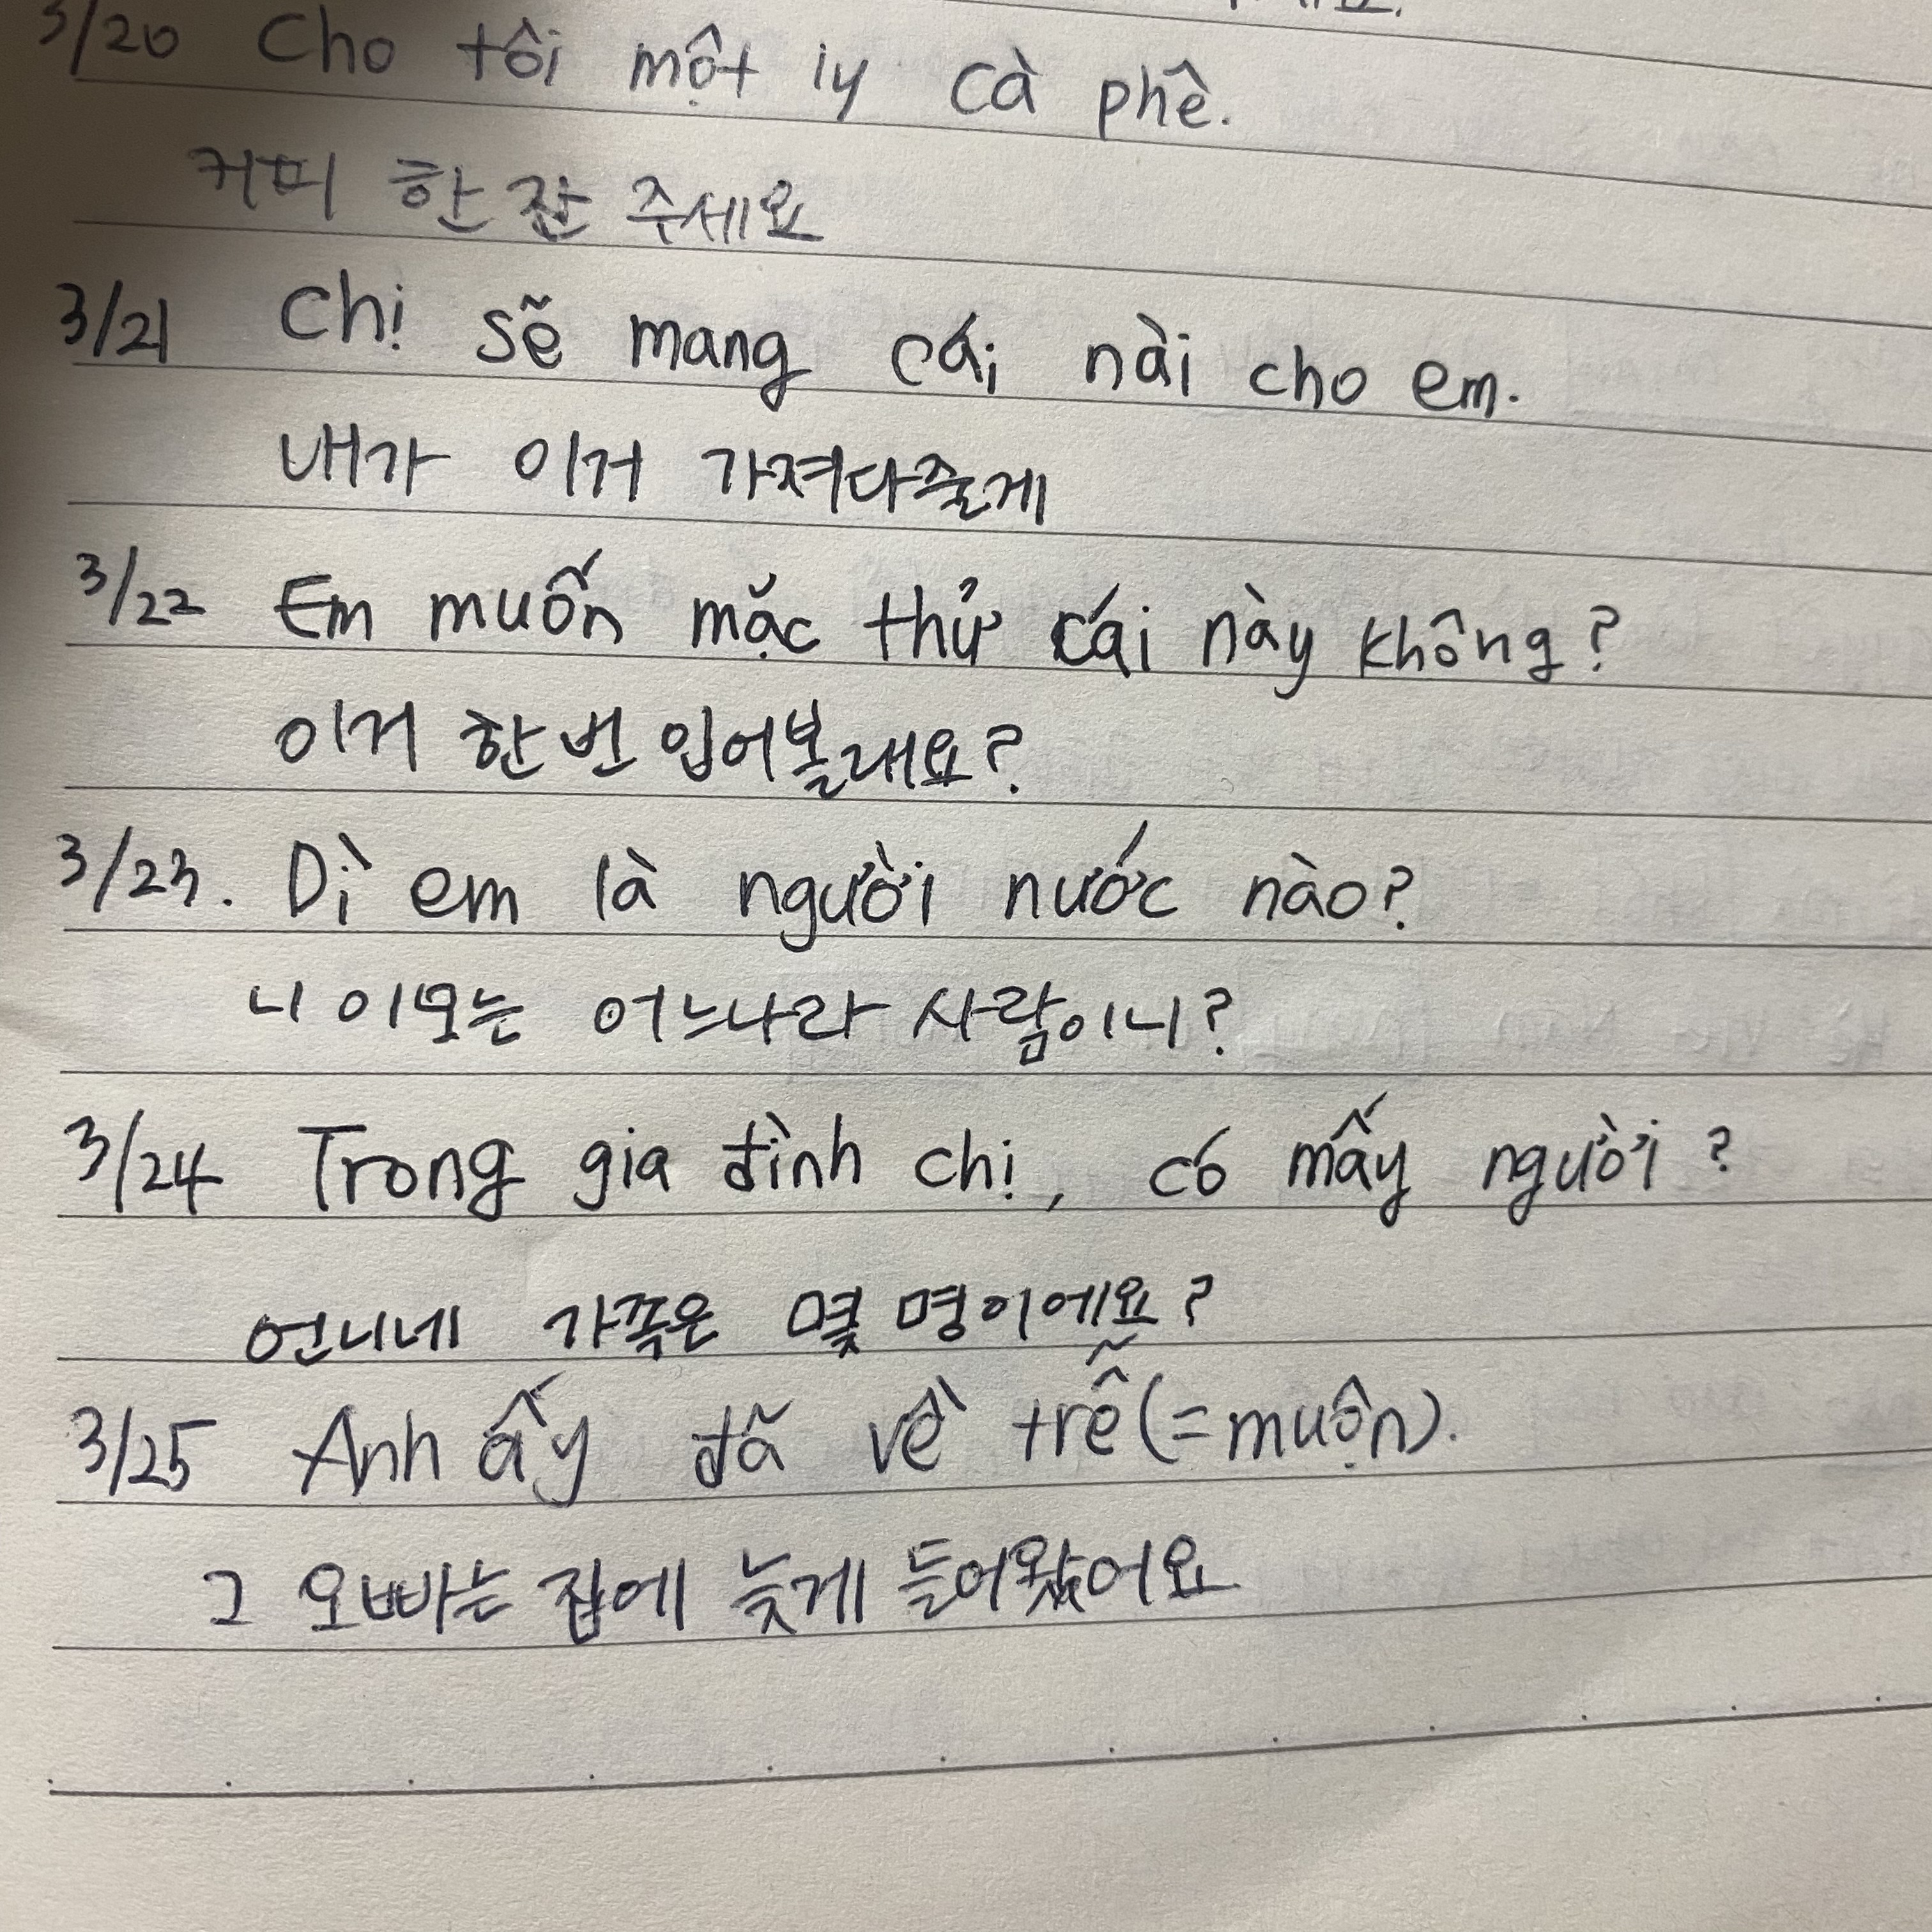 3/20 Cho tôi một iy cà phê.
커피 한 잔 주세요
3/21 Chị sẽ mang cái nài cho em.
내가 이거 가져다줄게
3/22 Em muốn mặc thử cái này không?
이거 한 번 입어볼래요?
3/23. Dì em là người nước nào?
니 이모는 어느나라 사람이니?
3/24 Trong gia đình chị, có mấy người?
언니네 가족은 몇 명이에요?
3/25 Anh ấy đã về trễ(=muộn).
그 오빠는 집에 늦게 들어왔어요